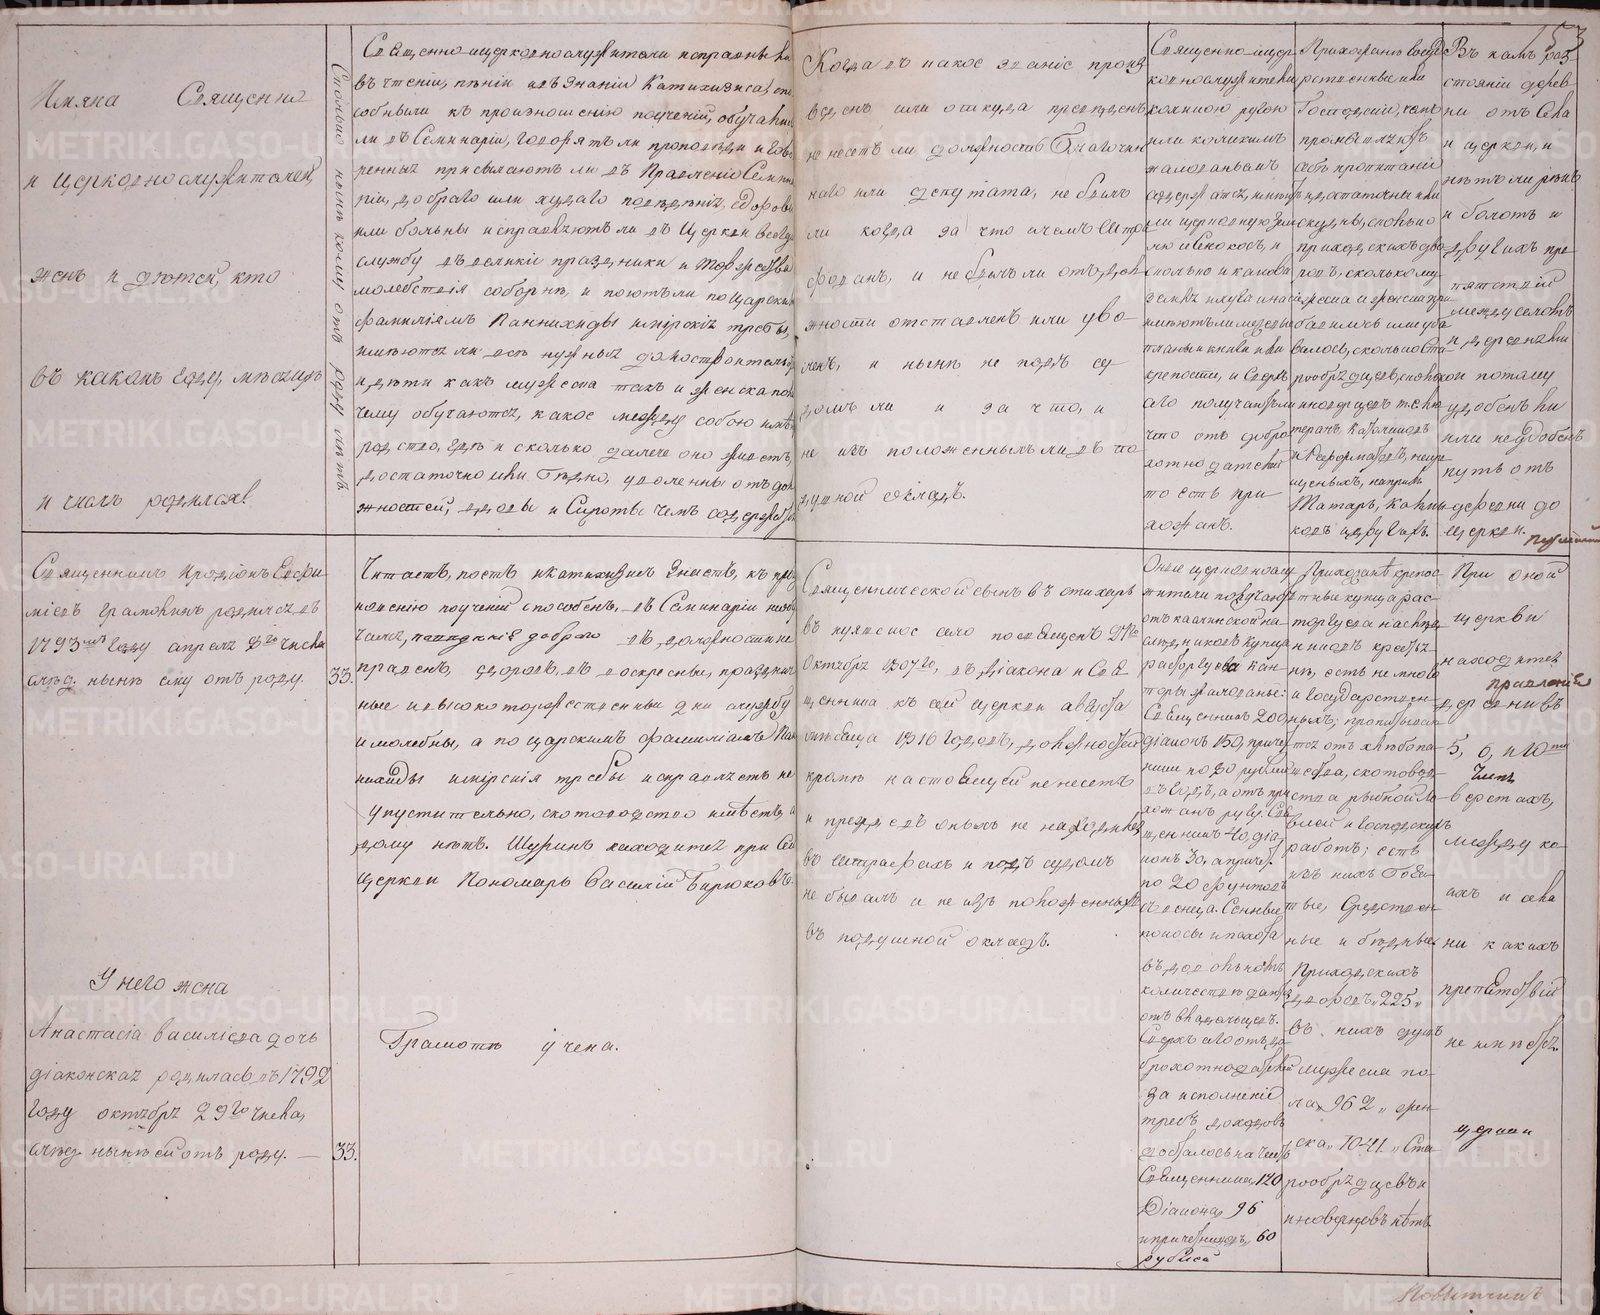 153
Имяна Священно
и Церковнослужителей,
женъ и дѣтей, кто
въ какомъ году, мѣсяцѣ
и числѣ родился
Сколько нынѣ кому отъ роду лѣтъ
Священно и церковнослужители исправны ли
въ чтеніи, пѣніи и въ знаніи Катихизиса, спо
собны ли къ произношенію поученій, обучались
ли въ Семинаріи, говорятъ ли проповѣди и гово
ренныя присылаютъ ли въ Правленіе Семина
ріи, добраго или худаго поведенія, здоровы
или больны исправляютъ ли въ Церкви всегда
службу въ великіе праздники и торжества
молебствія соборнѣ, и поютъ ли по царскимъ
фамиліямъ Паннихиды и мірскія требы,
имѣются ли всѣ нужныя домостроительства
и дѣти какъ мужеска такъ и женска пола
чему обучаются, какое между собою имѣютъ
родство, гдѣ и сколько далече оно живетъ,
достаточно или бѣдно, уволенны отъ дол
жностей, вдовы и Сироты чемъ содержатся
Когда въ какое званіе произ
веденъ или откуда преведенъ
не несетъ ли должность Благочин
наго или депутата, не былъ
ли когда за что и чемъ Штра
фованъ, и не былъ ли отъ дол
жности отставленъ или уво
ленъ, и нынѣ не подъ су
домъ ли и за что, и
не изъ положенныхъ ли въ по
душной окладъ.
Священно-цер
ковнослужители
какимо ругою
или какимъ
жалованьемъ
содержатся, имѣютъ
ли церковную зем
лю и Сенокосъ, и
сколько и какова
планы и книги или
крепости, и Сверхъ
сего получаютъ ли
что отъ добро
хотнодателей
то есть при
хожанъ.
Прихожанъ Госуд
рственные или
Господскіе, чемъ
промышляютъ
себѣ пропитаніе
достаточны или
скудны, сколько
приходскихъ дво
ровъ, сколько му
жеска и женска при
бавилось или уба
вилось, сколько Ста
рообрядцевъ, сколько
иновѣрцевъ т.е. Лю
теранъ, Католиковъ
и Реформатовъ, некре
щеныхъ, наприм.
Татаръ, Калмы
ковъ и другихъ.
Въ какомъ раз
стояніи дерев
ни отъ Села
и церкви, и
нѣтъ ли рѣкъ
и болотъ и
другихъ пре
пятствій
между селомъ
и деревнями
и потому
удобенъ ли
или неудобенъ
путь отъ
деревни до
церкви.
Священникъ Иродіонъ Евфи
міевъ Грамовинъ родился въ
1793мъ Году апреля 8го числа
слѣд. нынѣ ему отъ роду.
33.
Читаетъ, поетъ и катихизисъ знаетъ, къ про
изнесенію поученій способенъ, въ Семинаріи не обу
чался, поведенія добраго въ должности не
праздѣнъ, здоровъ, въ воскресные, празднич
ные и высокоторжественные дни службу
и молебны, а по царскимъ фамиліямъ Пан
нихиды и мірскія требы исправляетъ не
упустительно, скотоводство имѣетъ, а
дому нѣтъ. Шуринъ находится при Сей
церкви Пономарь Василій Бирюковъ.
Священнической сынъ въ стихарь
въ кузкное село посвященъ 27го
Октября 1807го, въ діакона и Свя
щенника къ сей церкви августа
мѣсяца 1816 годовъ, должностей
кромѣ настоящей не несетъ
и прежде въ оныхъ не находился,
въ Штрафахъ и подъ судомъ
не бывалъ и не изъ положенныхъ
въ подушной окладъ.
Оные церковнослу
жители получаютъ
расторгуева кан
торы жалованье:
Священникъ 200
діаконъ 150, причет
ники по 80 рублей
въ годъ, а отъ при
хожанъ ругу. Свя
щенникъ 40, діа
конъ 30, а причет.
по 20 фунтовъ
въ месяцъ. Сенные
покосы и пахота
въ довольномъ
количествѣ даются
отъ владельцевъ.
Сверхъ сего отъ до
брохотнодателей
за исполненіе
требъ доходовъ
досталось на часть
Священника, 120
Діакона, 96
и причетниковъ, 60
рублей
Прихожанѣ крепос
тные купца рас
торгуева наслѣд
никовъ крестья
нѣ, есть не много
и Государствен
ныхъ; пропитыва
тся отъ хлѣбопа
шества, скотовод
ства рыбной ло
вли и Господскихъ
работъ; есть
изъ нихъ Бога
тые, Средствен
ные и бѣдные
Приходскихъ
дворовъ „225„
въ нихъ душъ
мужеска по
ла, 962 „ жен
ска „ 1041 „ Ста
рообрядцевъ и
иновѣрцовъ нѣтъ
При оной
церкви
находится
правленіе
деревни въ
5, 6, и 10ти
верстахъ,
между ко
ихъ и села
ни какихъ
препятствій
не имѣется.
церкви
У него жена
Анастасія васильева дочь
діаконская родилась въ 1792
Году октября 29го числа,
слѣд. нынѣ ей отъ роду. —
33.
Грамотѣ учена.
Повытчикъ